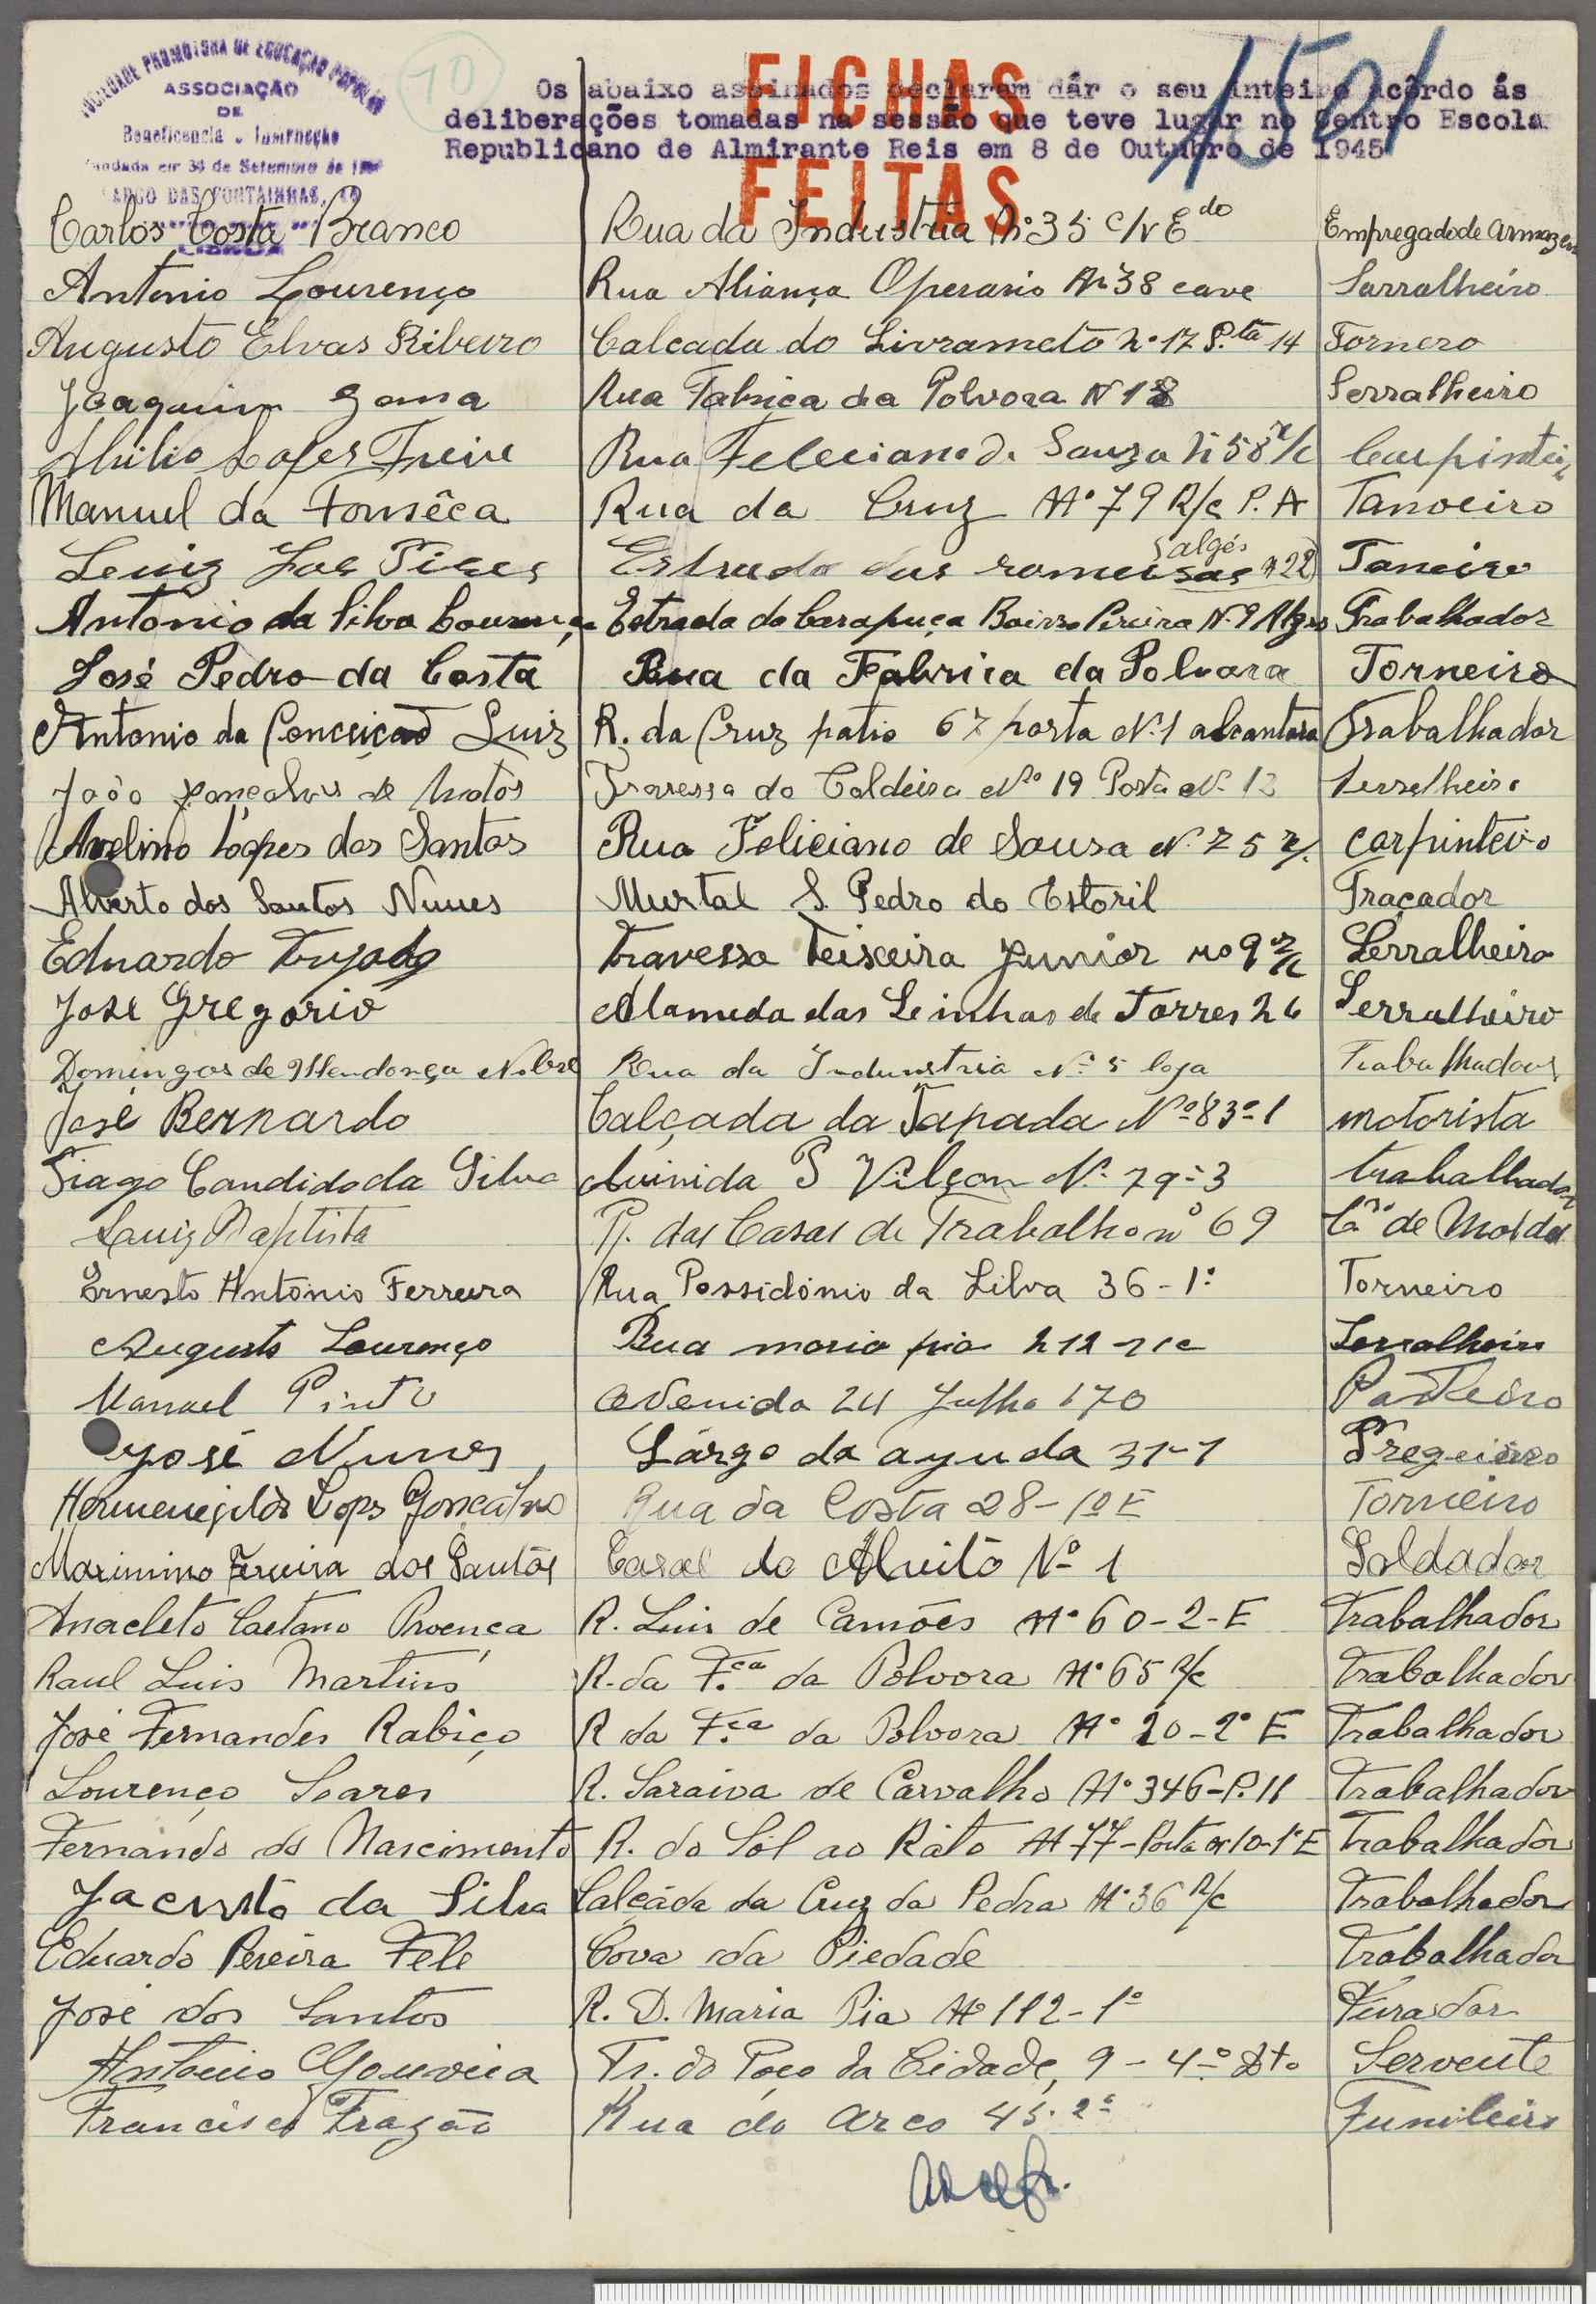 SOCIEDADE PROMOTORA DE EDUCAÇÃO POPULAR
ASSOCIAÇÃO
DE
Beneficencia e Instrucção
LARGO DAS FONTAINHAS,
LISBOA
10
FICHAS
FEITAS
1501
Os abaixo assinados declaram dár o seu inteiro acôrdo ás
deliberações tomadas na sessão que teve lugar no Centro Escola
Republicano de Almirante Reis em 8 de Outubro de 1945
Carlos Costa Branco Rua da Industria Nº 35 c/v Edo Empregado de armazem
Antonio Lourenço Rua Aliança Operario Nº 38 cave Sarralheiro
Augusto Elvas Ribeiro Calcada do Livrameto nº 17 P.ta 14 Tornero
Joaquim Gama Rua Fabrica da Polvora N 18 Serralheiro
Abilio Lopes Freire Rua Feleciano de Souza nº 58 r/c Carpinteiro
Manuel da Fonsêca Rua da Cruz Nº 79 R/c P. A Tanoeiro
Luiz Estrada das romeiras Algés Nº 22 Taneiro
Antonio da Silva Lourenço Estrada da Carapuça Bairro Pereira N. 9 Algés Trabalhador
José Pedro da Costa Rua da Fabrica da Polvora Torneiro
Antonio da Conceicaõ Luiz R. da Cruz patio 67 porta Nº 1 alcantara Trabalhador
João Gonçalves de Matos Travessa do Caldeira Nº 19 Porta Nº 12 Serralheiro
Avelino Lopes dos Santos Rua Feliciano de Sousa Nº 75 carpinteiro
Alberto dos Santos Nunes Murtal S. Pedro do Estoril Traçador
Eduardo Travessa Teixeira Junior nº 9 r/c Serralheiro
José Gregorio Alameda das Leinhas de Torres 26 Serralheiro
Domingos de Mendonça Nobre Rua da Industria Nº 5 loja Trabalhador
José Bernardo Calçada da Tapada Nº 83º 1 motorista
Tiago Candido da Silva Auinida P Vilçon Nº 79 = 3 trabalhador
Luiz Baptista P. das Casas de Trabalho nº 69 de Moldes
Ernesto Antonio Ferreira Rua Possidónio da Silva 36 - 1º Torneiro
Augusto Lourenço Rua maria pia 212 r/c Serralheiro
Manuel Pinto Avenida 24 Julho 170
José Nunes Lárgo da ayuda 31-1 Pregueiro
Hermenegildo Lopes Gonçalves Rua da Costa 28 - 1º E Torneiro
Maximino Ferreira dos Santos Casal do Alvito Nº 1 Soldador
Anacleto Caetano Proença R. Luis de Camões Nº 60 - 2 - E Trabalhador
Raul Luis Martins R. da F.ca da Polvora Nº 65 R/c Trabalhador
José Fernandes Rabiço R da F.ca da Polvora Nº 20 - 2º E Trabalhador
Lourenço Soares R. Saraiva de Carvalho Nº 346 - P. 11 Trabalhador
Fernando do Nascimento R. do Sol ao Ráto Nº 77 - Porta nº 10 - 1º E Trabalhador
Jacinto da Silva Calçáda da Cruz da Pedra Nº 36 R/c Trabalhador
Eduardo Pereira Fele Cova da Piedade Trabalhador
José dos Santos R. D. Maria Pia Nº 112 - 1º Furador
Antonio Gouveia Tr. do Poço da Cidade, 9 - 4º Dto Servente
Francisco Frazão Rua do arco 45. 2º Funileiro